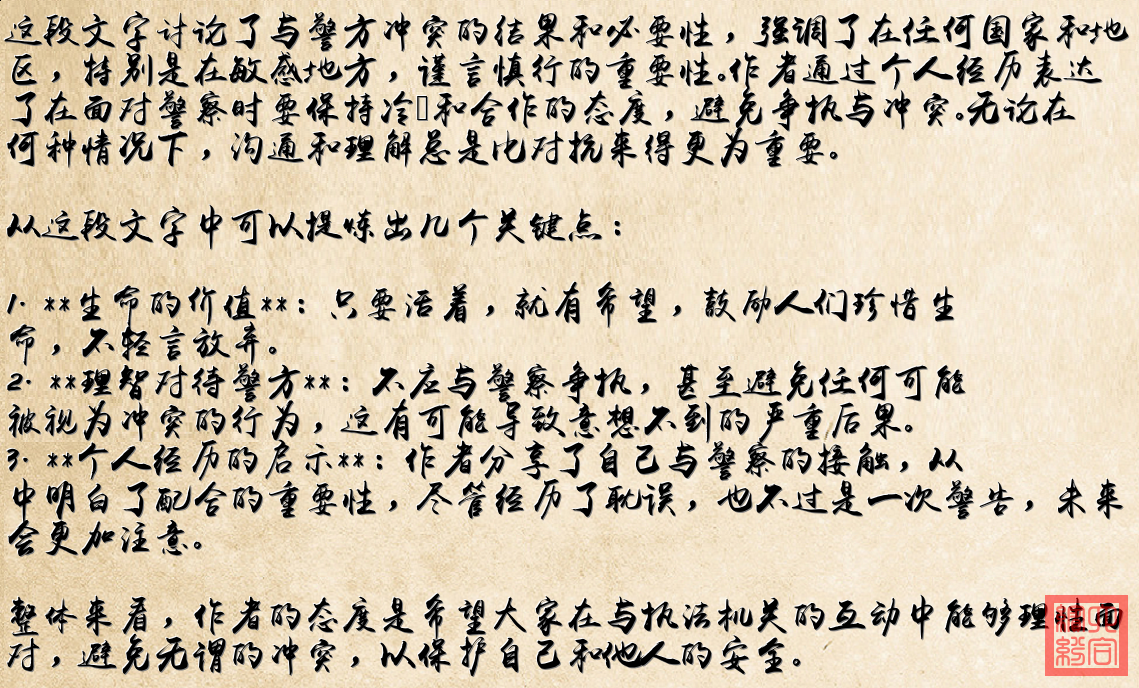 这段文字讨论了与警方冲突的结果和必要性，强调了在任何国家和地
区，特别是在敏感地方，谨言慎行的重要性。作者通过个人经历表达
了在面对警察时要保持冷▯和合作的态度，避免争执与冲突。无论在
何种情况下，沟通和理解总是比对抗来得更为重要。
从这段文字中可以提炼出几个关键点：
1. **生命的价值**：只要活着，就有希望，鼓励人们珍惜生
命，不轻言放弃。
2. **理智对待警方**：不应与警察争执，甚至避免任何可能
被视为冲突的行为，这有可能导致意想不到的严重后果。
3. **个人经历的启示**：作者分享了自己与警察的接触，从
中明白了配合的重要性，尽管经历了耽误，也不过是一次警告，未来
会更加注意。
整体来看，作者的态度是希望大家在与执法机关的互动中能够理性面
对，避免无谓的冲突，以保护自己和他人的安全。